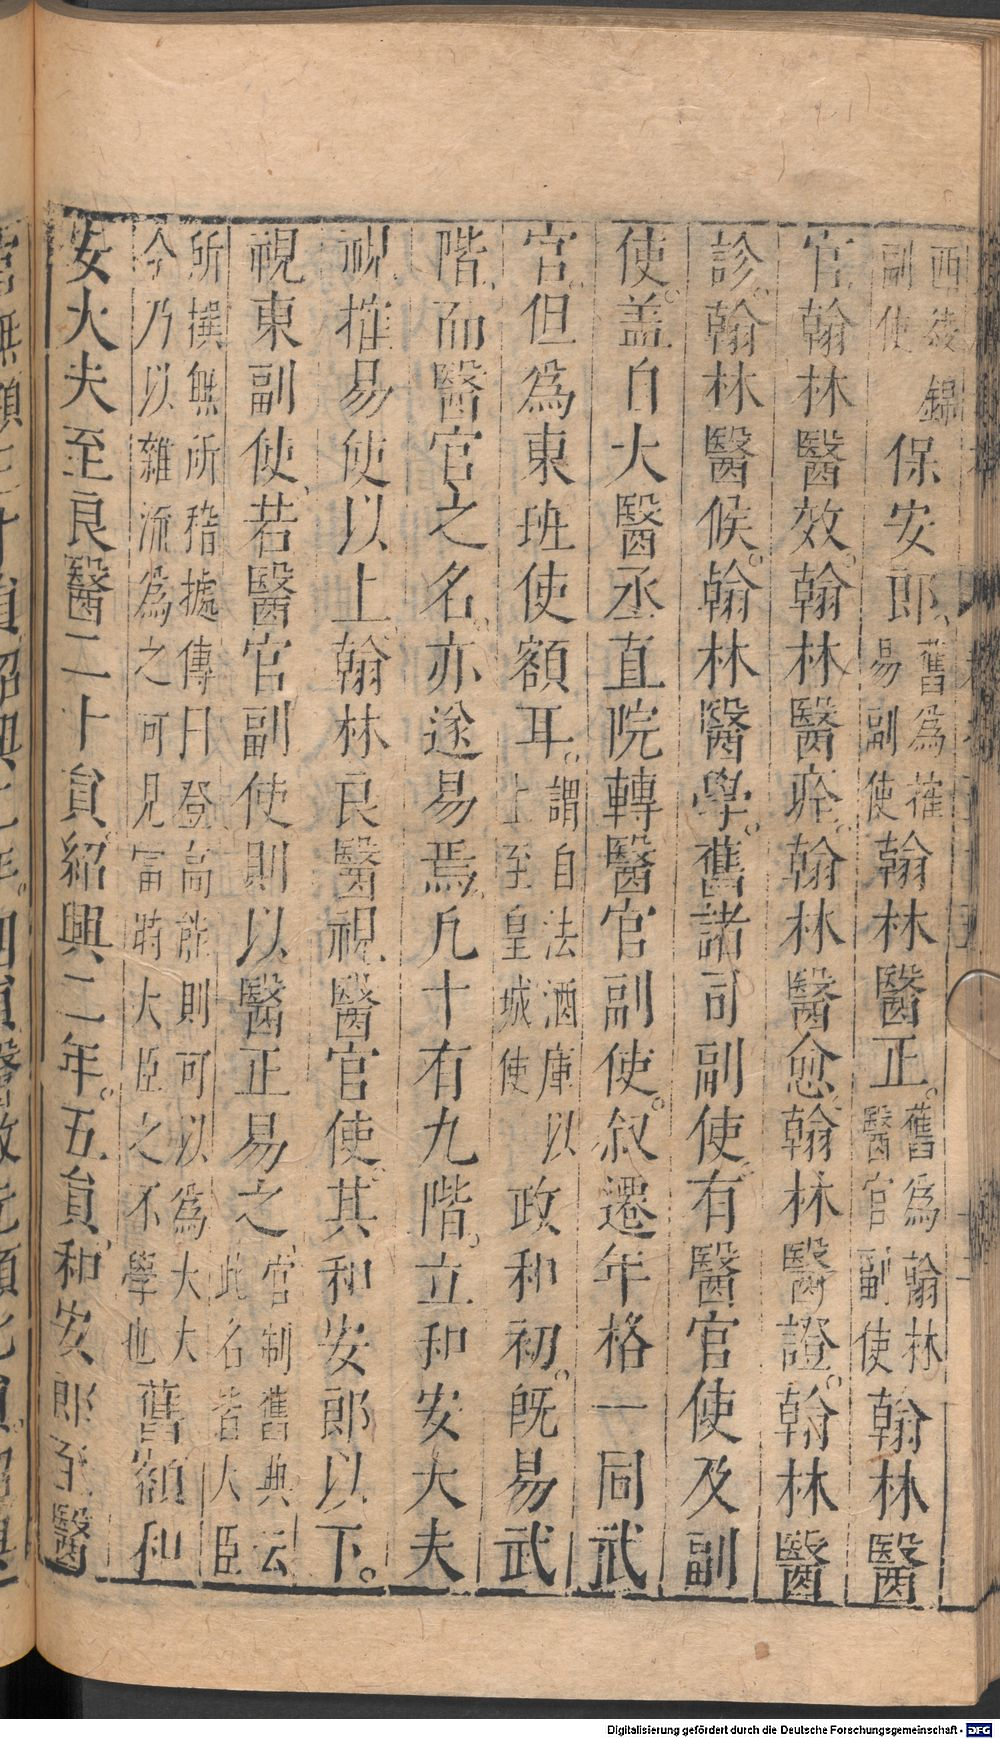 西綾錦副使保安郎舊為㩁易副使翰林醫正舊為翰林醫官副使翰林醫
官翰林醫效翰林醫痊翰林醫愈翰林醫證翰林醫
診翰林醫候翰林醫學舊諸司副使有醫官使及副
使盖自大醫丞直院轉醫官副使叙遷年格一同武
官但為東班使額耳謂自法酒庫以上至皇城使政和初既易武
階而醫官之名亦遂易焉凡十有九階立和安大夫
視㩁易使以上翰林良醫視醫官使其和安郎以下
視東副使若醫官副使則以醫正易之官制舊典云此名皆大臣
所撰無所稽據傳曰登高能則可以為大夫今乃以雜流為之可見當時大臣之不學也舊額和
安大夫至良醫二十員紹興二年五員和安郎至醫
Digitalisierung gefördert durch die Deutsche Forschungsgemeinschaft - DFG